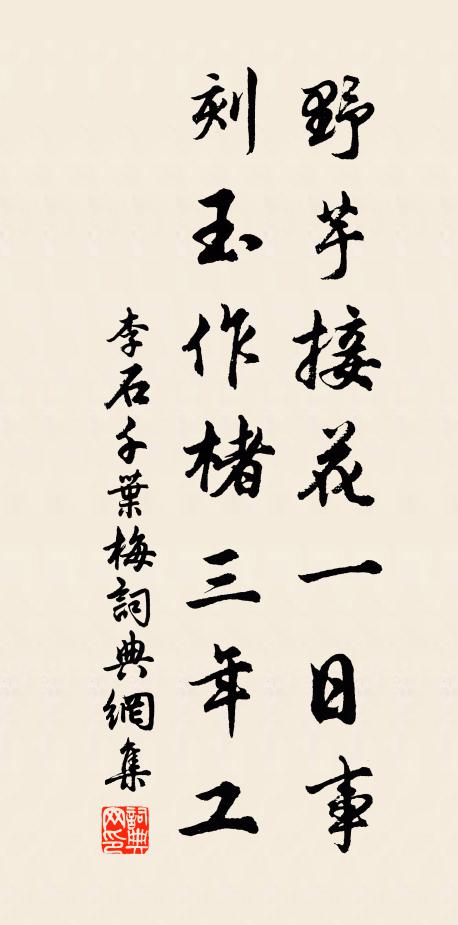 野芋接花一日事
刻玉作楮三年工
李石千葉梅詞典網集
詞典網印